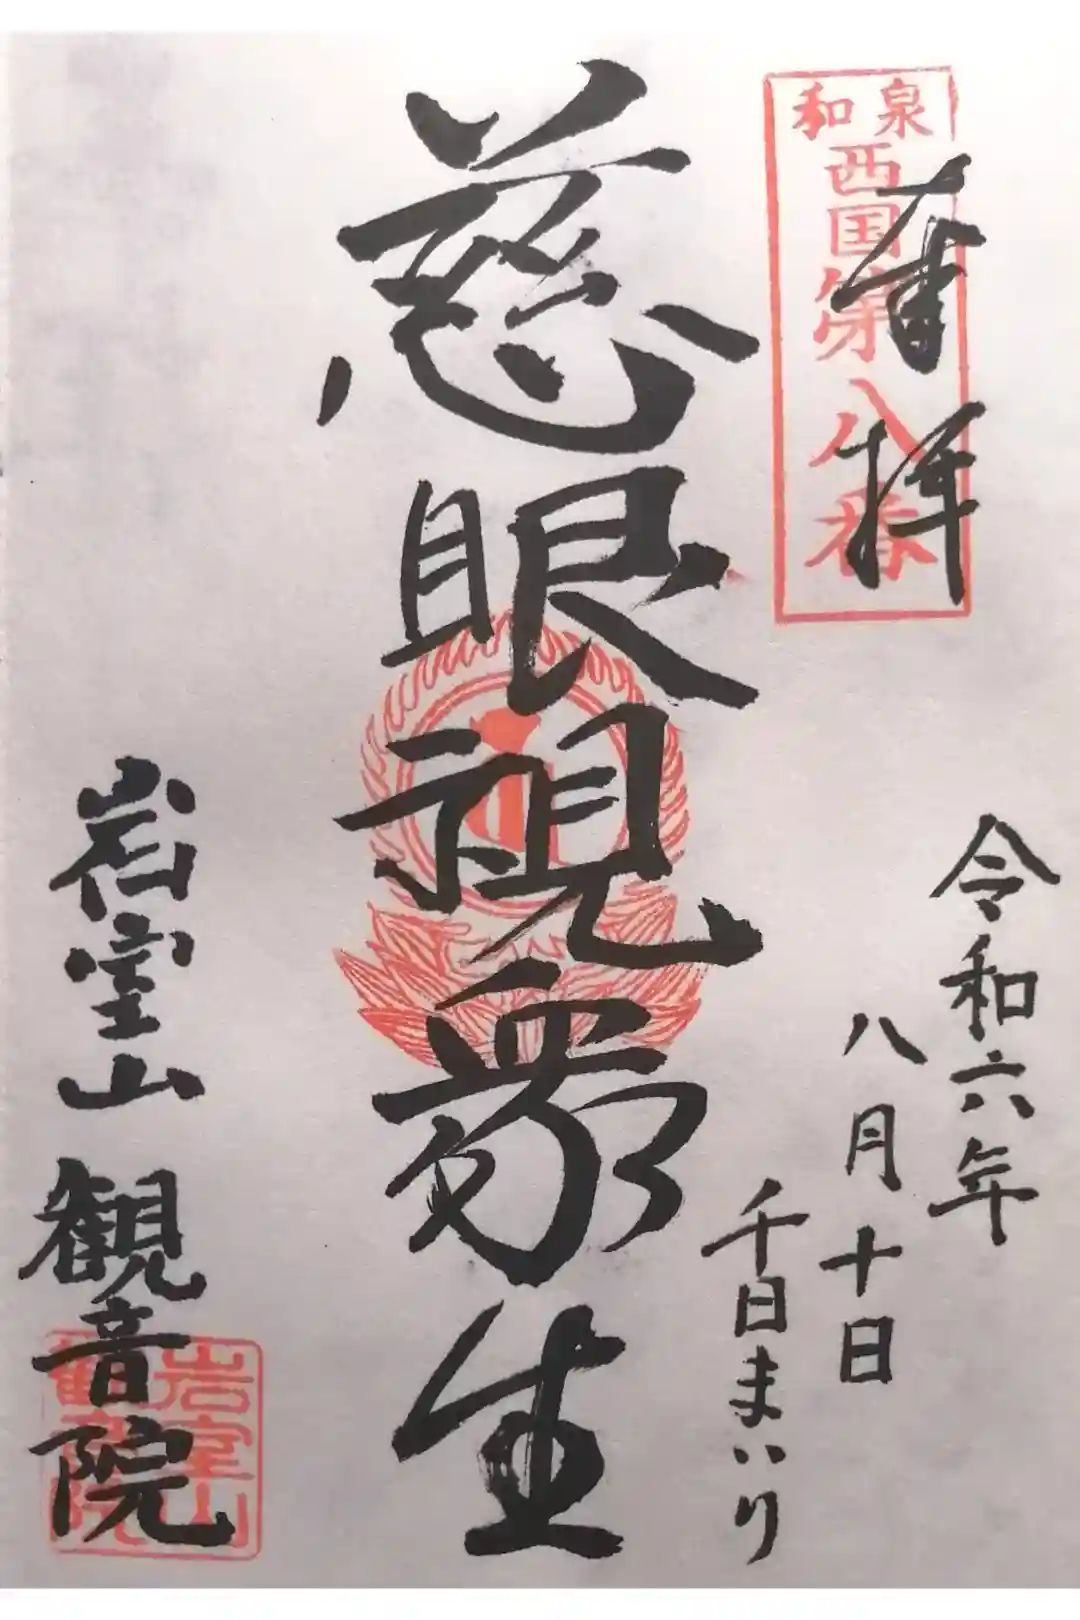 奉拝
和泉
西国第八番
令和六年
八月十日
千日まいり
慈眼視衆生
岩室山 観音院
岩室山
観音院